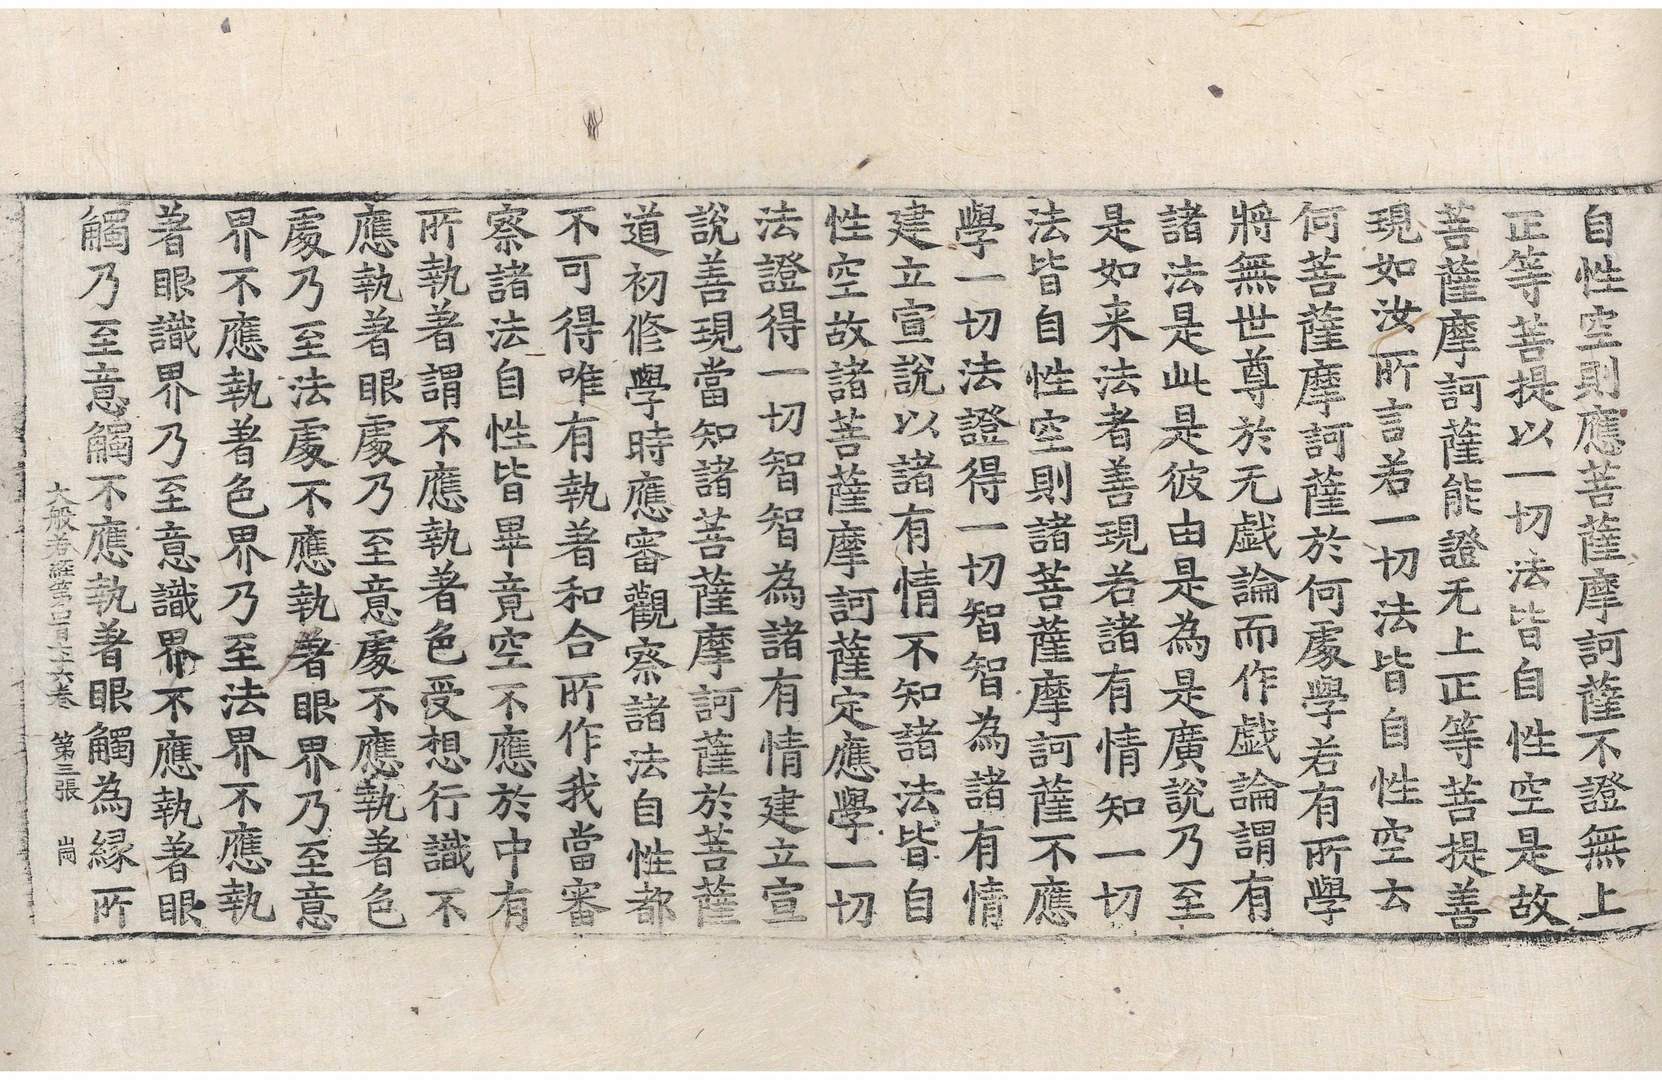 自性空則應菩薩摩訶薩不證無上
正等菩提以一切法皆自性空是故
菩薩摩訶薩能證无上正等菩提善
現如汝所言若一切法皆自性空云
何菩薩摩訶薩於何處學若有所學
將無世尊於无戲論而作戲論謂有
諸法是此是彼由是為是廣說乃至
是如来法者善現若諸有情知一切
法皆自性空則諸菩薩摩訶薩不應
學一切法證得一切智智為諸有情
建立宣說以諸有情不知諸法皆自
性空故諸菩薩摩訶薩定應學一切
法證得一切智智為諸有情建立宣
說善現當知諸菩薩摩訶薩於菩薩
道初修學時應審觀察諸法自性都
不可得唯有執著和合所作我當審
察諸法自性皆畢竟空不應於中有
所執著謂不應執著色受想行識不
應執著眼處乃至意處不應執著色
處乃至法處不應執著眼界乃至意
界不應執著色界乃至法界不應執
著眼識界乃至意識界不應執著眼
觸乃至意觸不應執著眼觸為緣所
大般若經第四百六十六卷 第三張 崗